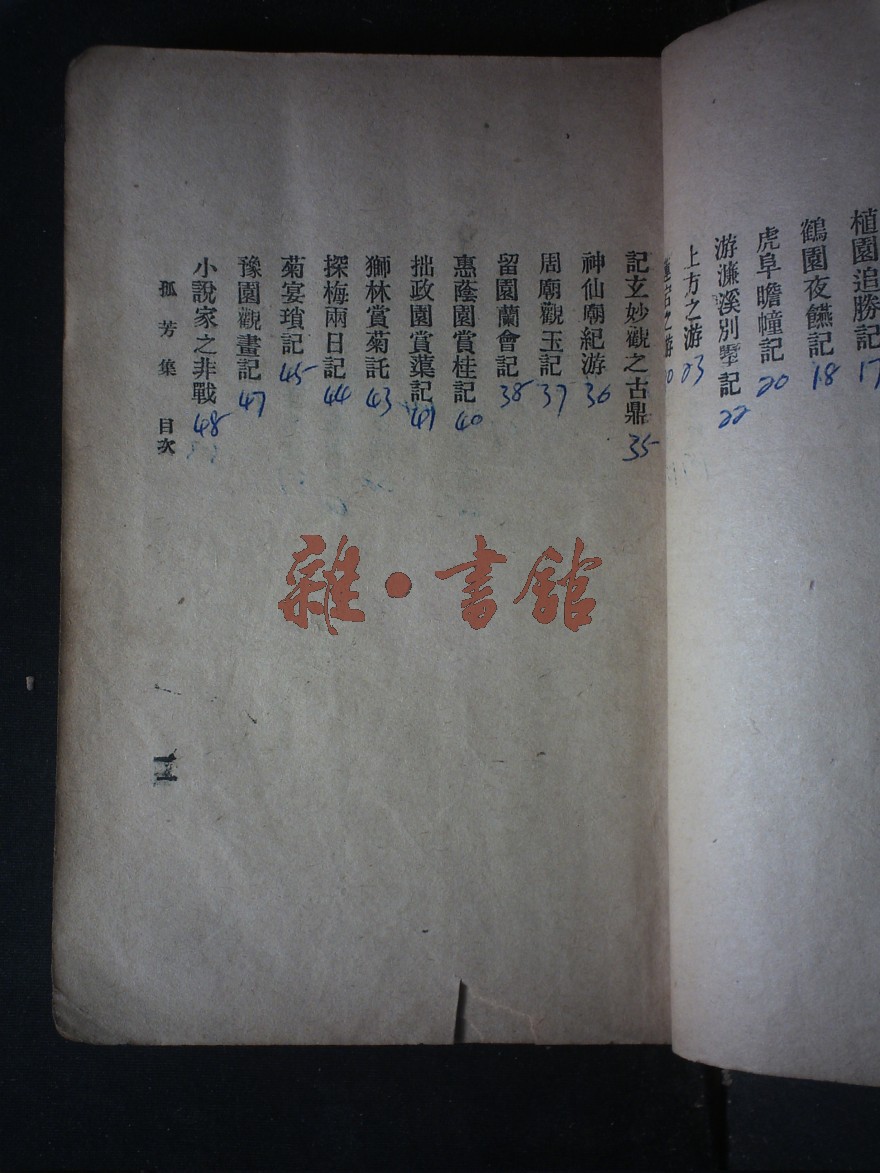 植園追勝記 17
鶴園夜讌記 18
虎阜瞻幢記 20
游濂溪別墅記 22
上方之游 23
之游
記玄妙觀之古鼎 35
神仙廟紀游 36
周廟觀玉記 37
留園蘭會記 38
惠蔭園賞桂記 40
拙政園賞蕖記 41
獅林賞菊記 43
探梅兩日記 44
菊宴瑣記 45
豫園觀畫記 47
小說家之非戰 48
孤芳集 目次
二
雜·書館